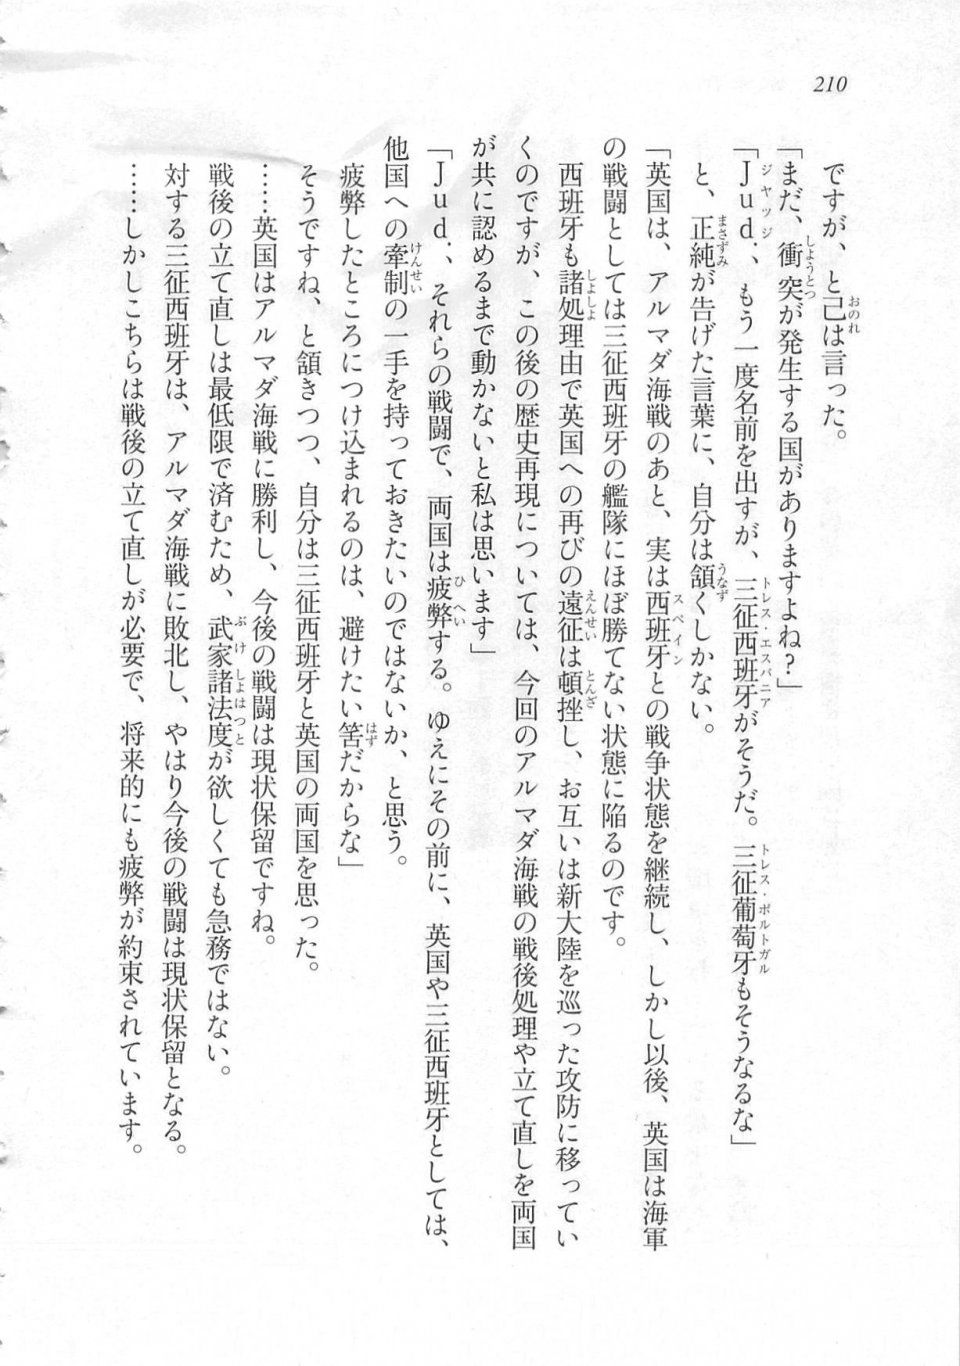 210
ですが、と己は言った。
「まだ、衝突が発生する国がありますよね？」
「Ｊｕｄ．、もう一度名前を出すが、三征西班牙がそうだ。三征葡萄牙もそうなるな」
と、正純が告げた言葉に、自分は頷くしかない。
「英国は、アルマダ海戦のあと、実は西班牙との戦争状態を継続し、しかし以後、英国は海軍
の戦闘としては三征西班牙の艦隊にほぼ勝てない状態に陥るのです。
西班牙も諸処理由で英国への再びの遠征は頓挫し、お互いは新大陸を巡った攻防に移ってい
くのですが、この後の歴史再現については、今回のアルマダ海戦の戦後処理や立て直しを両国
が共に認めるまで動かないと私は思います」
「Ｊｕｄ．、それらの戦闘で、両国は疲弊する。ゆえにその前に、英国や三征西班牙としては、
他国への牽制の一手を持っておきたいのではないか、と思う。
疲弊したところにつけ込まれるのは、避けたい筈だからな」
そうですね、と頷きつつ、自分は三征西班牙と英国の両国を思った。
……英国はアルマダ海戦に勝利し、今後の戦闘は現状保留ですね。
戦後の立て直しは最低限で済むため、武家諸法度が欲しくても急務ではない。
対する三征西班牙は、アルマダ海戦に敗北し、やはり今後の戦闘は現状保留となる。
……しかしこちらは戦後の立て直しが必要で、将来的にも疲弊が約束されています。